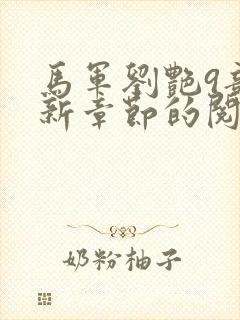 馬軍劉艷9最
新章節的閱
奶粉柚子